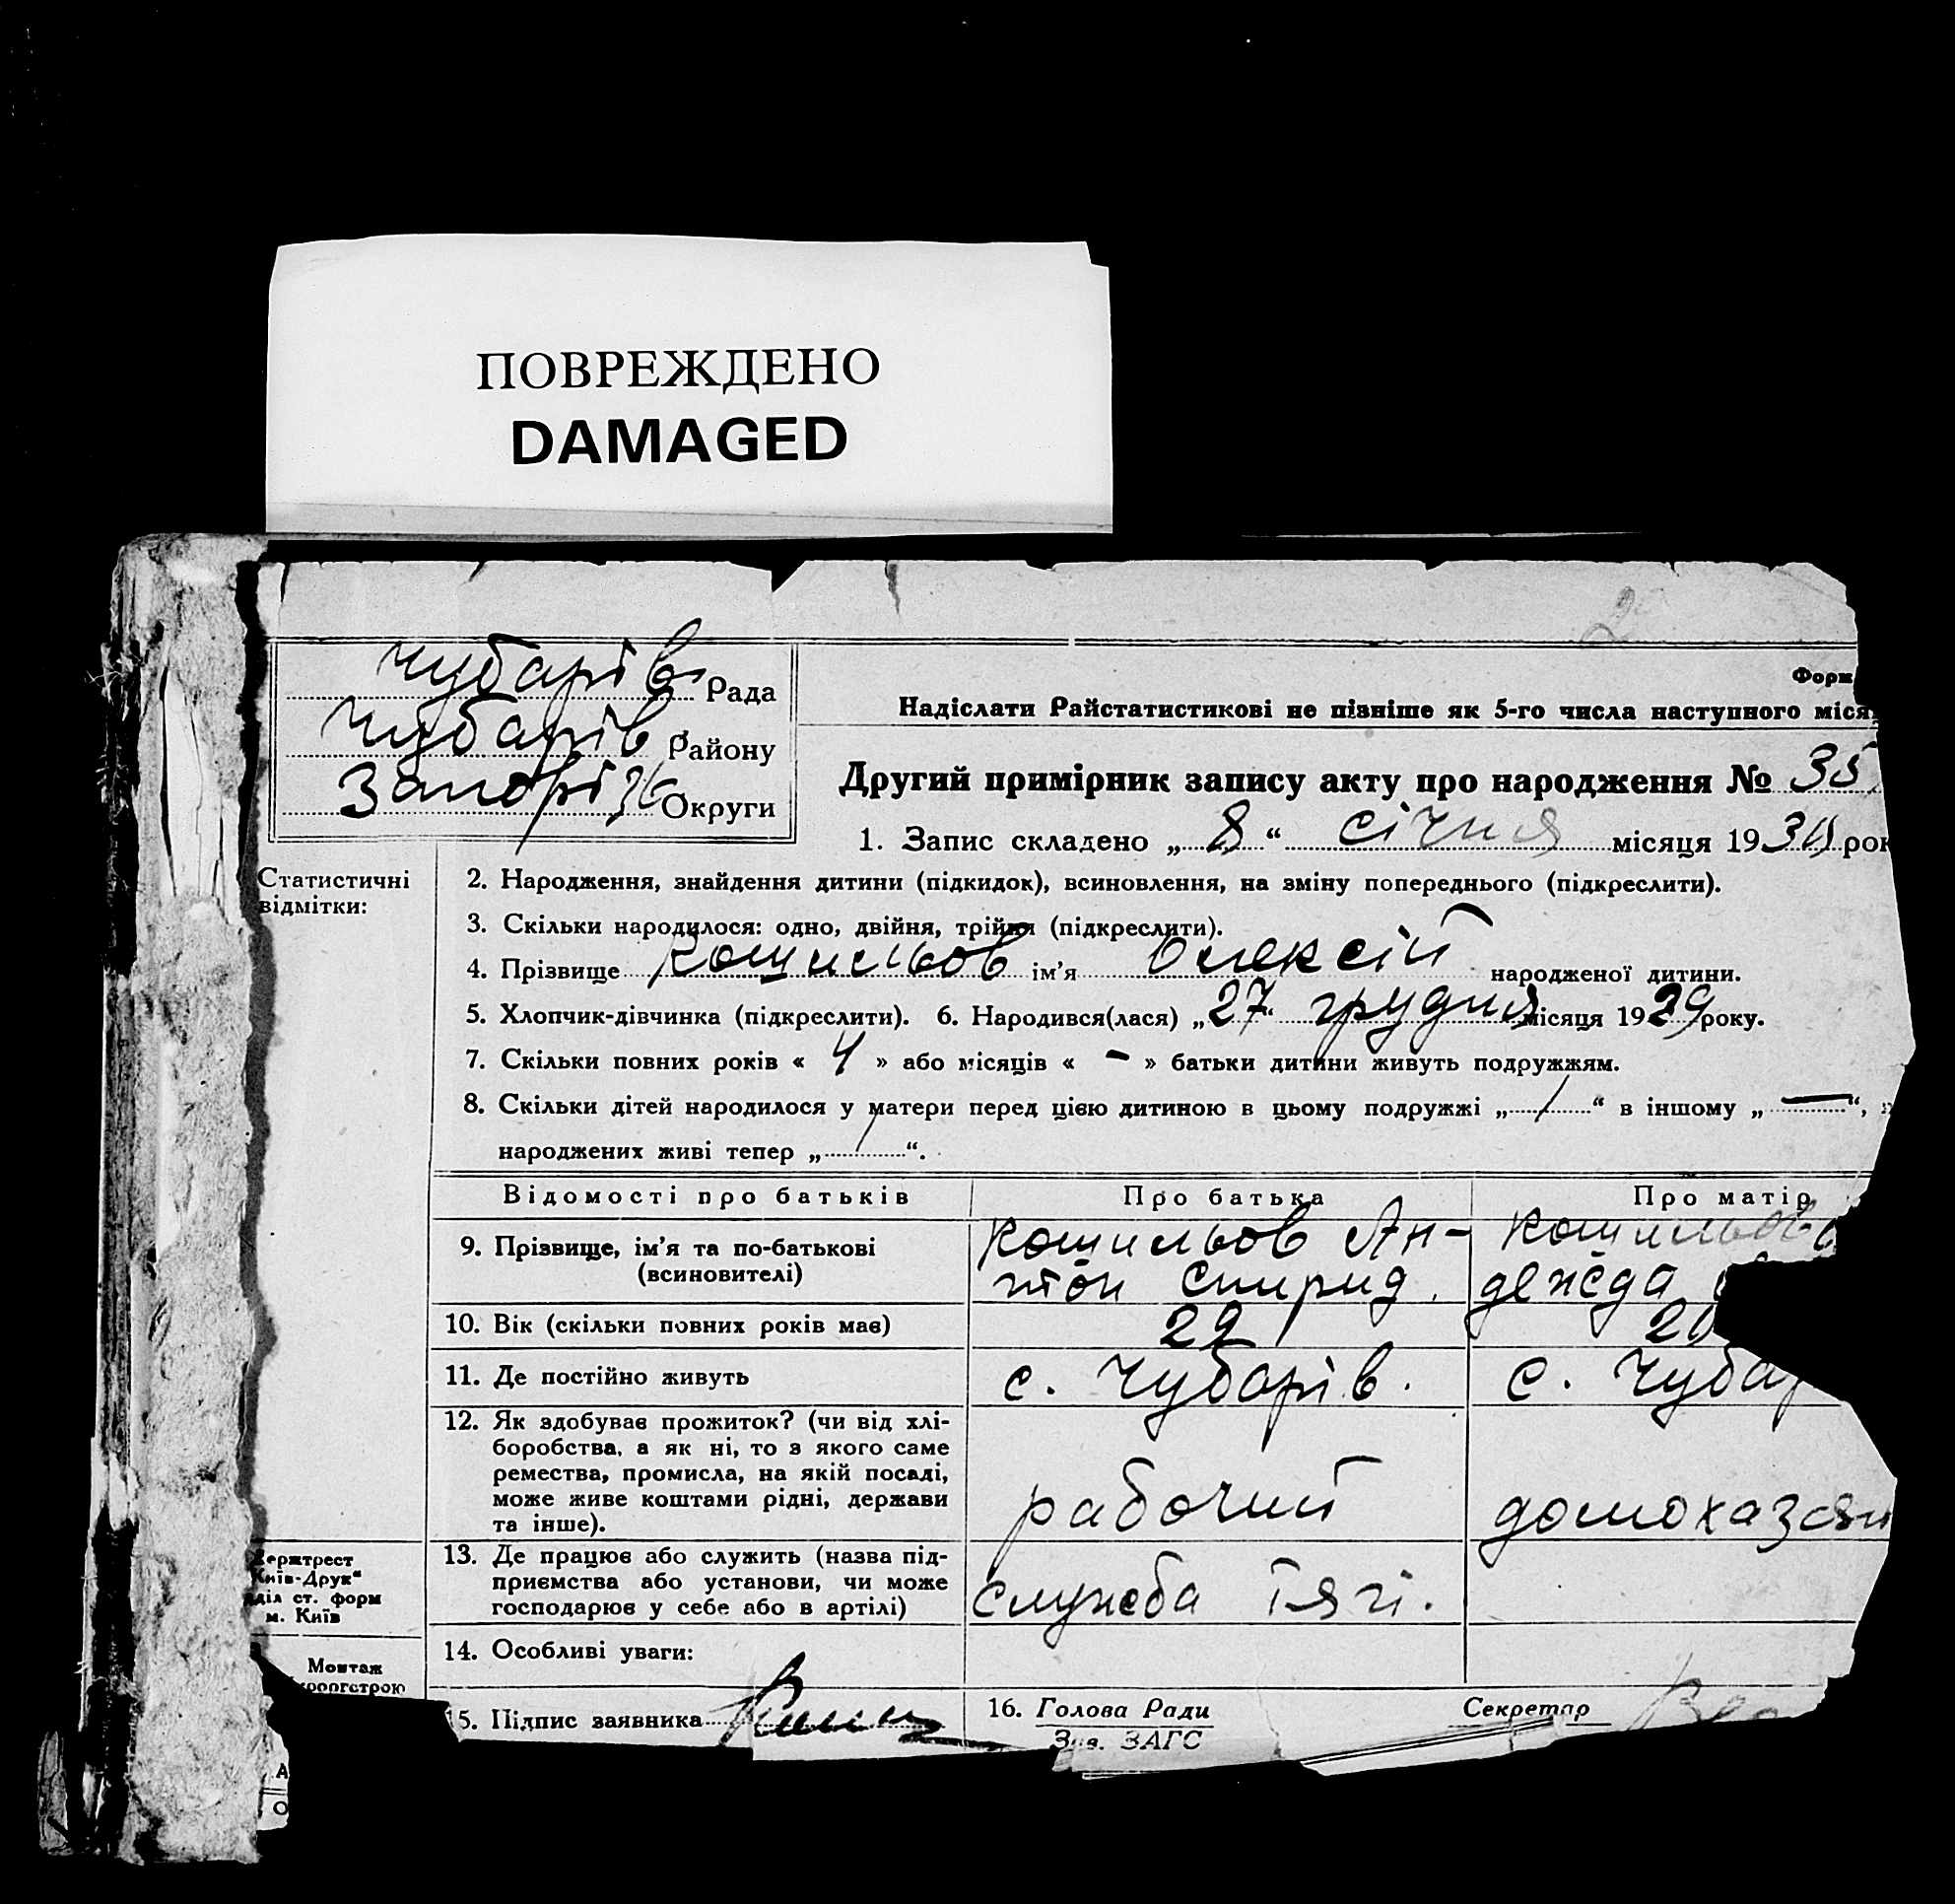 ПОВРЕЖДЕНО
DAMAGED
2
Чубарів Рада
Чубарів Району
Запоріж Округи
Форм
Надіслати Райстатистикові не пізніше як 5-го числа наступного міся
Другий примірник запису акту про народження № 35
1. Запис складено „ 8 “ січня місяця 1930 рок
Статистичні
відмітки:
2. Народження, знайдення дитини (підкидок), всиновлення, на зміну попереднього (підкреслити).
3. Скільки народилося: одно, двійня, трійня (підкреслити).
4. Прізвище Кошильов ім’я Олексій народженої дитини.
5. Хлопчик-дівчинка (підкреслити). 6. Народився(лася) „ 27 “ грудня місяця 1929 року.
7. Скільки повних років « 4 » або місяців « – » батьки дитини живуть подружжям.
8. Скільки дітей народилося у матери перед цією дитиною в цьому подружжі „ 1 “ в іншому „ — “,
народжених живі тепер „ 1 “.
Відомості про батьків Про батька Про матір
9. Прізвище, ім’я та по-батькові
(всиновителі)
Кошильов Ан-
тон Спирид.
Кошильов
дежда
10. Вік (скільки повних років має) 29
11. Де постійно живуть с. Чубарів. с. Чубар
12. Як здобуває прожиток? (чи від хлі-
боробства, а як ні, то з якого саме
ремества, промисла, на якій посаді,
може живе коштами рідні, держави
та інше).
рабочий домохазяи
13. Де працює або служить (назва під-
приємства або установи, чи може
господарює у себе або в артілі)
служба тягі.
Держтрест
Київ-Друк“
діл ст. форм
м. Київ
14. Особливі уваги:
Монтаж
15. Підпис заявника
16. Голова Ради
Зав. ЗАГС
Секретар
А
О